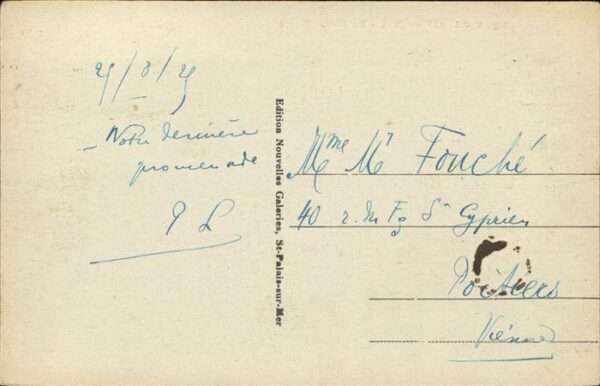 25/8/25
- Notre dernière
promenade
P L
Edition Nouvelles Galeries, St-Palais-sur-Mer
Mme Mr Fouché
40 r. du Fg St Cyprien
Poitiers
Vienne